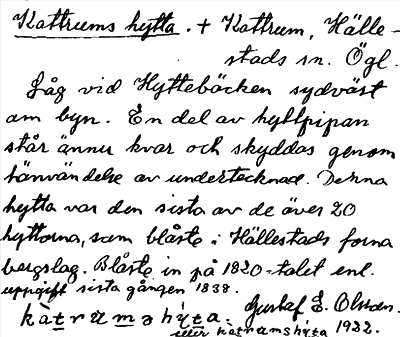 Kattrums hytta. + Kattrum, Hälle-
stads sn. Ögl.
Låg vid Hyttebäcken sydväst
om byn. En del av hyttpipan
står ännu kvar och skyddas genom
hänvändelse av undertecknad. Denna
hytta var den sista av de över 20
hyttorna, som blåste i Hällestads forna
bergslag. Blåste in på 1820-talet enl.
uppgift sista gången 1838.
Gustaf E. Olsson.
kàtrumshýta.
eller kàtrumshýta 1932.